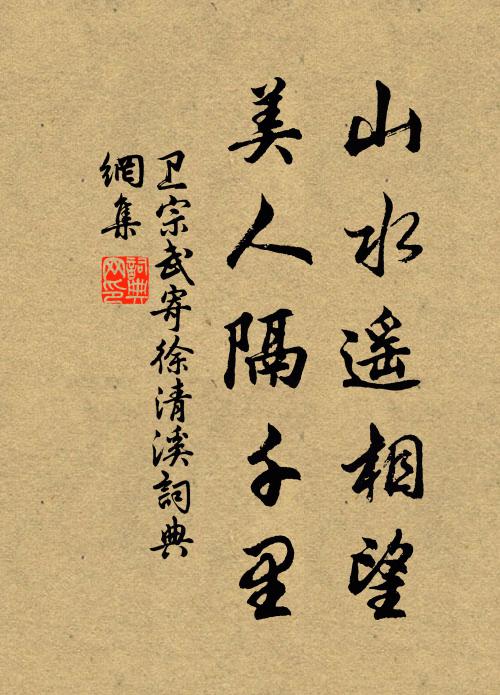 山水遥相望
美人隔千里
卫宗武寄徐清溪詞典
網集
詞典
网印